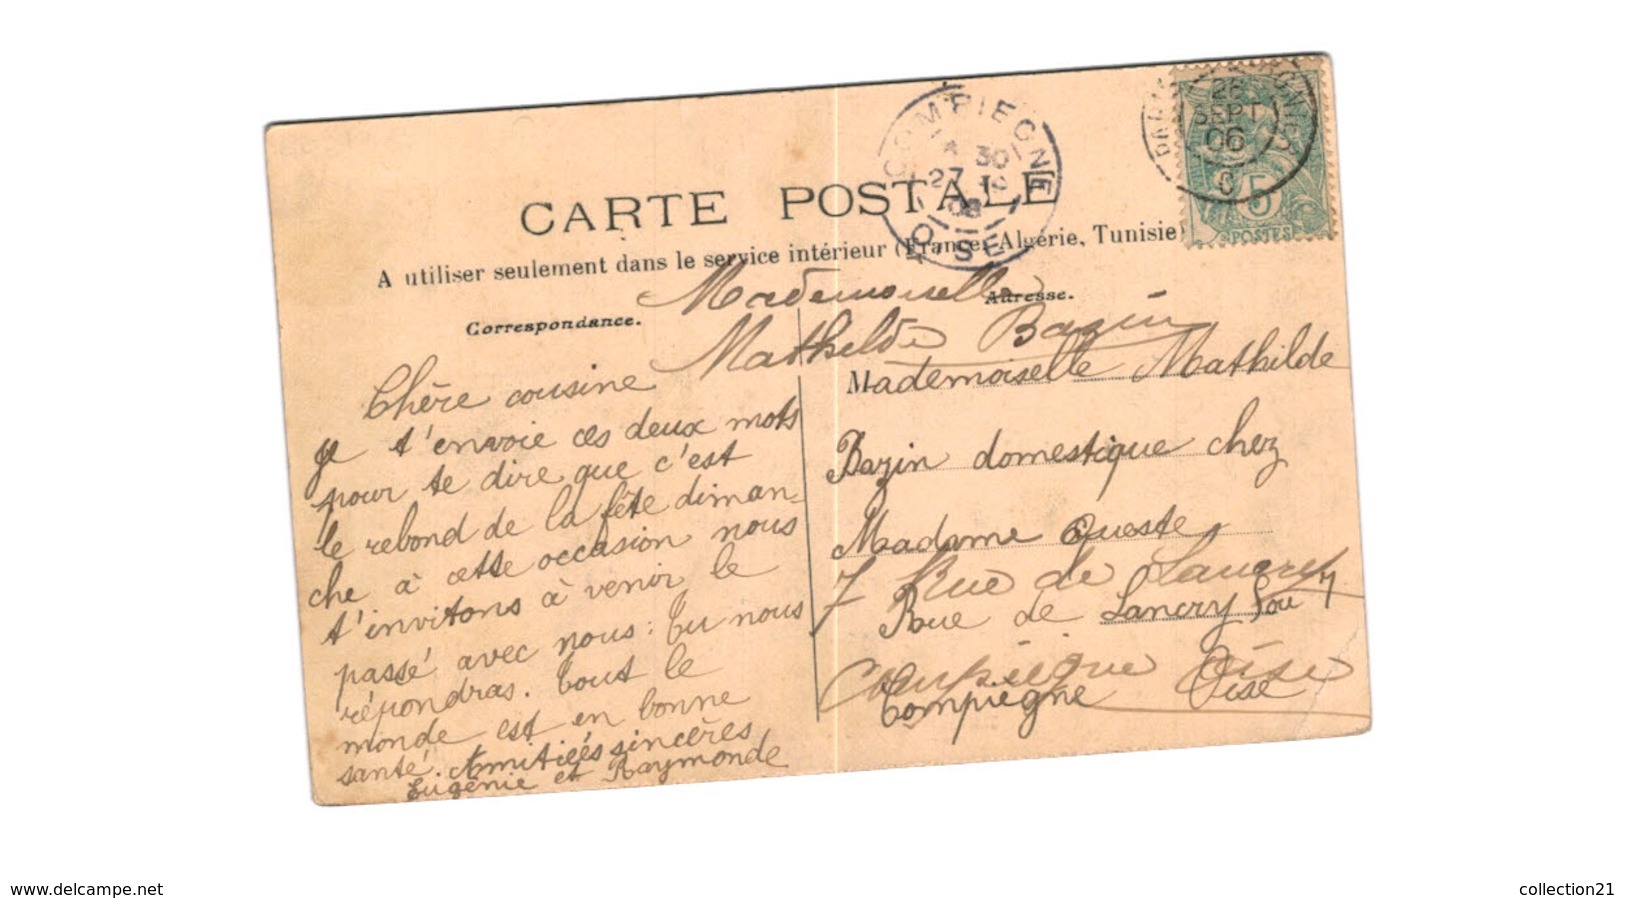 CARTE POSTALE
A utiliser seulement dans le service intérieur (France, Algérie, Tunisie)
Correspondance.
Adresse.
COMPIEGNE
30
27
06
OISE
26
SEPT
06
5
POSTES
Mademoiselle
Mathilde Bazin
Chère cousine
Je t'envoie ces deux mots
pour te dire que c'est
le rebond de la fête diman-
che à cette occasion nous
t'invitons à venir le
passé avec nous: tu nous
répondras. Tout le
monde est en bonne
santé. Amitiés sincères
Eugènie et Raymonde
Mademoiselle Mathilde
Bazin domestique chez
Madame Queste
7 Rue de Lancry
Rue de Lancry 5 ou 7
Compiègne Oise
Compiègne Oise
www.delcampe.net
collection21